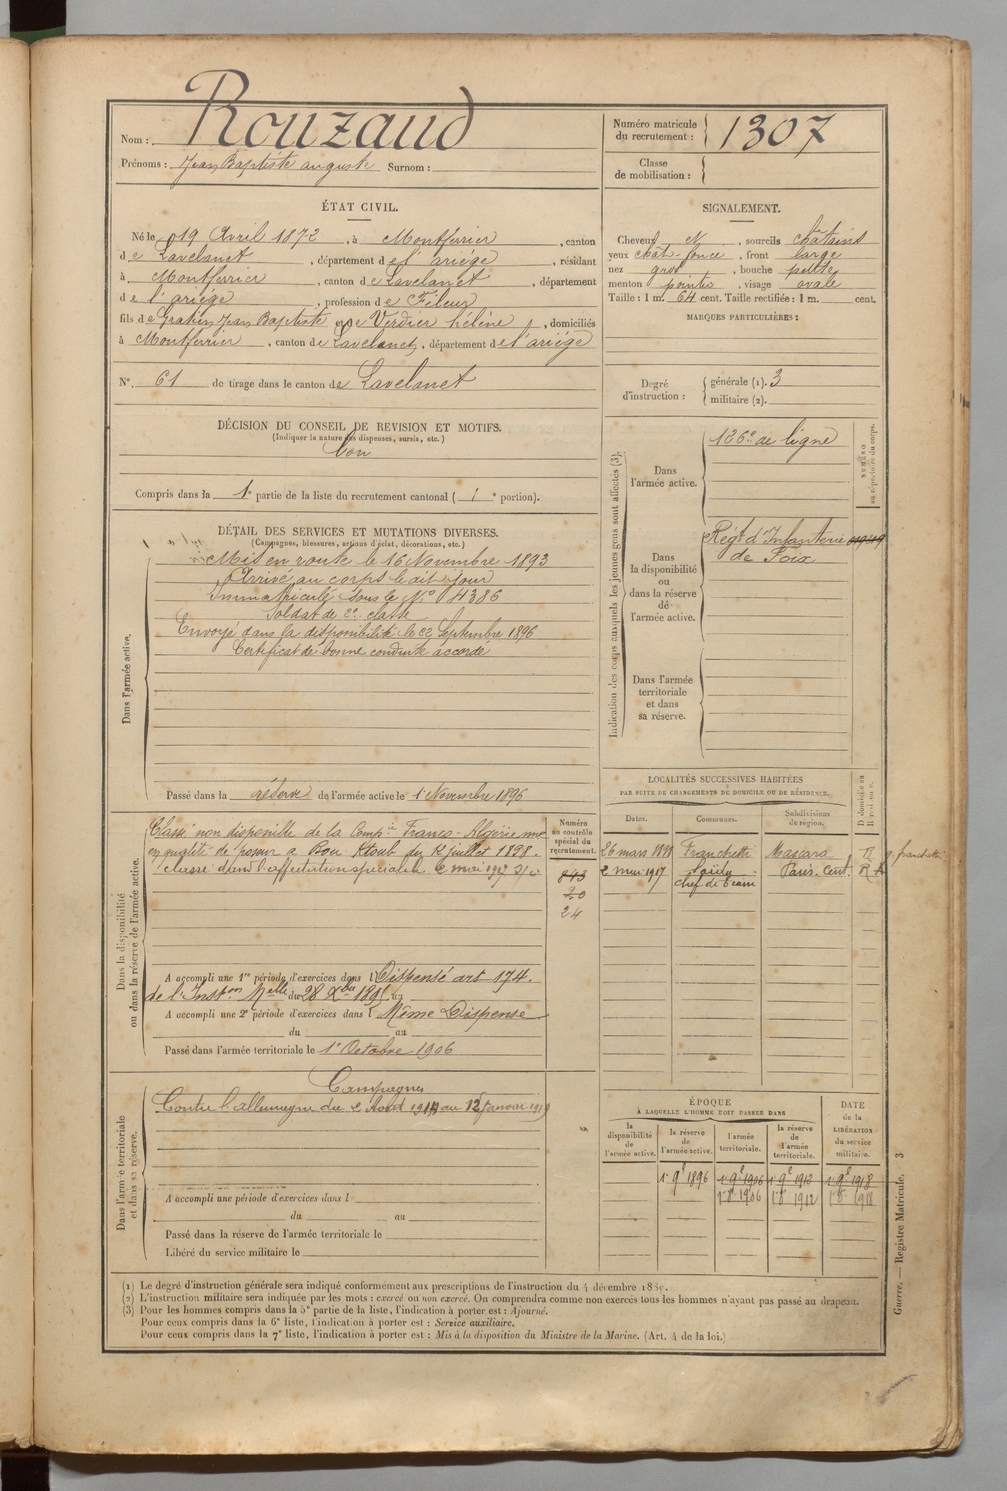 Nom : Rouzaud
Prénoms : Jean Baptiste auguste Surnom :
Numéro matricule du recrutement : 1307
Classe de mobilisation :
ÉTAT CIVIL.
Né le 19 Avril 1872, à Montferrier, canton
de Lavelanet, département de l'ariége, résidant
à Montferrier, canton de Lavelanet, département
de l'ariége, profession de Fileur
fils de Jean Baptiste et de Verdier hélène, domiciliés
à Montferrier, canton de Lavelanet, département de l'ariége
N° 61 de tirage dans le canton de Lavelanet
SIGNALEMENT.
Cheveux et, sourcils châtains
yeux chât-foncé, front large
nez gros, bouche petite
menton pointu, visage ovale
Taille : 1 m. 64 cent. Taille rectifiée : 1 m. cent.
MARQUES PARTICULIÈRES :
Degré d'instruction :
générale (1). 3
militaire (2).
DÉCISION DU CONSEIL DE REVISION ET MOTIFS.
(Indiquer la nature des dispenses, sursis, etc.)
bon
Compris dans la 1e partie de la liste du recrutement cantonal ( 1e portion).
DÉTAIL DES SERVICES ET MUTATIONS DIVERSES.
(Campagnes, blessures, actions d'éclat, décorations, etc.)
Dans l'armée active.
Mis en route le 16 Novembre 1893
Arrivé au corps le dit jour
Immatriculé sous le N° 4386
Soldat de 2e classe
Envoyé dans la disponibilité le 22 Septembre 1896
Certificat de bonne conduite accordé
Passé dans la réserve de l'armée active le 1 Novembre 1896
Indication des corps auxquels les jeunes gens sont affectés (3).
NUMÉRO au répertoire du corps.
Dans l'armée active.
126e de ligne
Dans la disponibilité ou dans la réserve de l'armée active.
Régt d'Infanterie
de Foix
Dans l'armée territoriale et dans sa réserve.
Dans la disponibilité ou dans la réserve de l'armée active.
Classé non disponible de la Compie Franco-Algérienne
en qualité de poseur a Bou Ktoub du 12 juillet 1898.
classé dans l'affectation spéciale 2 mai 1917
Numéro au contrôle spécial du recrutement.
843
20
24
A accompli une 1re période d'exercices dans l Dispensé art 174.
de l'Inston Melle du 28 Xbre 1895 au
A accompli une 2e période d'exercices dans l Même Dispense
du au
Passé dans l'armée territoriale le 1e Octobre 1906
LOCALITÉS SUCCESSIVES HABITÉES
PAR SUITE DE CHANGEMENTS DE DOMICILE OU DE RÉSIDENCE.
Dates. Communes. Subdivisions de région. D domicile ou R résidence.
26 mars 1898 Franchetti Mascara R g. franchetti
2 mai 1917 Saïda Paris. Cent. R
chef de Team
Dans l'armée territoriale et dans sa réserve.
Campagnes
Contre l'allemagne du 2 Août 1914 au 12 Janvier 1919
A accompli une période d'exercices dans l
du au
Passé dans la réserve de l'armée territoriale le
Libéré du service militaire le
ÉPOQUE
À LAQUELLE L'HOMME DOIT PASSER DANS
la disponibilité de l'armée active.
la réserve de l'armée active.
l'armée territoriale.
la réserve de l'armée territoriale.
DATE de la LIBÉRATION du service militaire.
1e 9e 1896 1e 9e 1906 1e 9e 1912 1e 9e 1918
1e 8e 1906 1e 8e 1912 1e 8e 1918
(1) Le degré d'instruction générale sera indiqué conformément aux prescriptions de l'instruction du 4 décembre 1889.
(2) L'instruction militaire sera indiquée par les mots : exercé ou non exercé. On comprendra comme non exercés tous les hommes n'ayant pas passé au drapeau.
(3) Pour les hommes compris dans la 5e partie de la liste, l'indication à porter est : Ajourné.
Pour ceux compris dans la 6e liste, l'indication à porter est : Service auxiliaire.
Pour ceux compris dans la 7e liste, l'indication à porter est : Mis à la disposition du Ministre de la Marine. (Art. 4 de la loi.)
Guerre. — Registre Matricule. 3